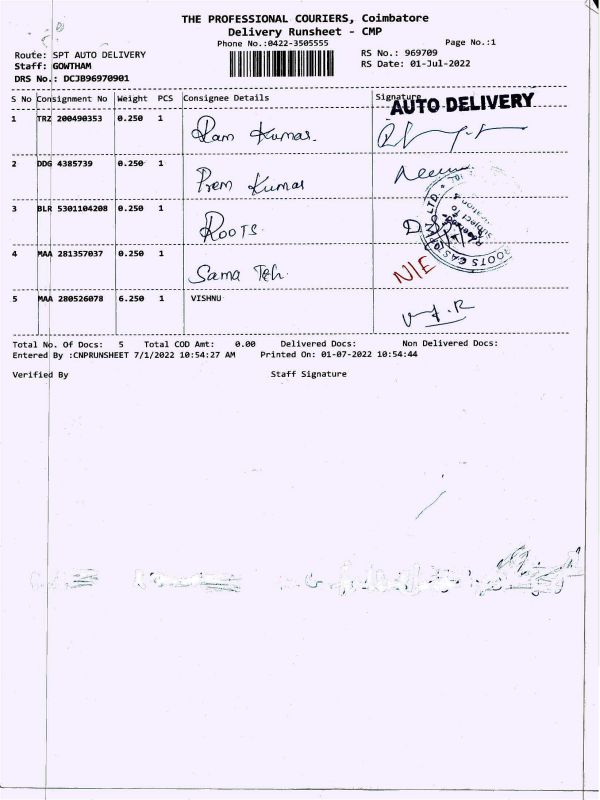 THE PROFESSIONAL COURIERS, Coimbatore
Delivery Runsheet - CMP
Phone No.:0422-3505555
Page No.:1
Route: SPT AUTO DELIVERY
Staff: GOWTHAM
DRS No.: DCJB96970901
RS No.: 969709
RS Date: 01-Jul-2022
S No Consignment No Weight PCS Consignee Details Signature
AUTO DELIVERY
1 TRZ 200490353 0.250 1 Ram Kumar.
2 DDG 4385739 0.250 1 Prem Kumar
3 BLR 5301104208 0.250 1 ROOTS
4 MAA 281357037 0.250 1 Sama Teh. N/E
5 MAA 280526078 6.250 1 VISHNU
ROOTS
Total No. Of Docs: 5 Total COD Amt: 0.00 Delivered Docs: Non Delivered Docs:
Entered By :CNPRUNSHEET 7/1/2022 10:54:27 AM Printed On: 01-07-2022 10:54:44
Verified By Staff Signature